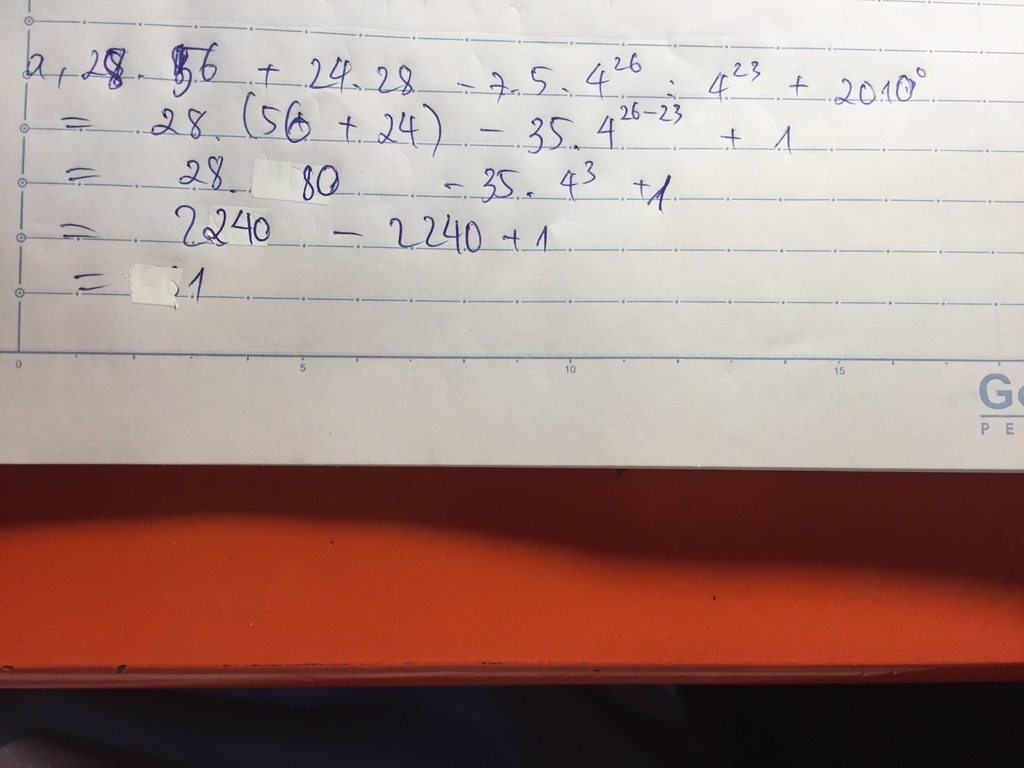 a, 28. 56 + 24.28 - 7.5. 4²⁶ : 4²³ + 2010⁰
= 28. (56 + 24) - 35. 4²⁶⁻²³ + 1
= 28. 80 - 35. 4³ +1
= 2240 - 2240 + 1
= 1
0 5 10 15
Ge
PE